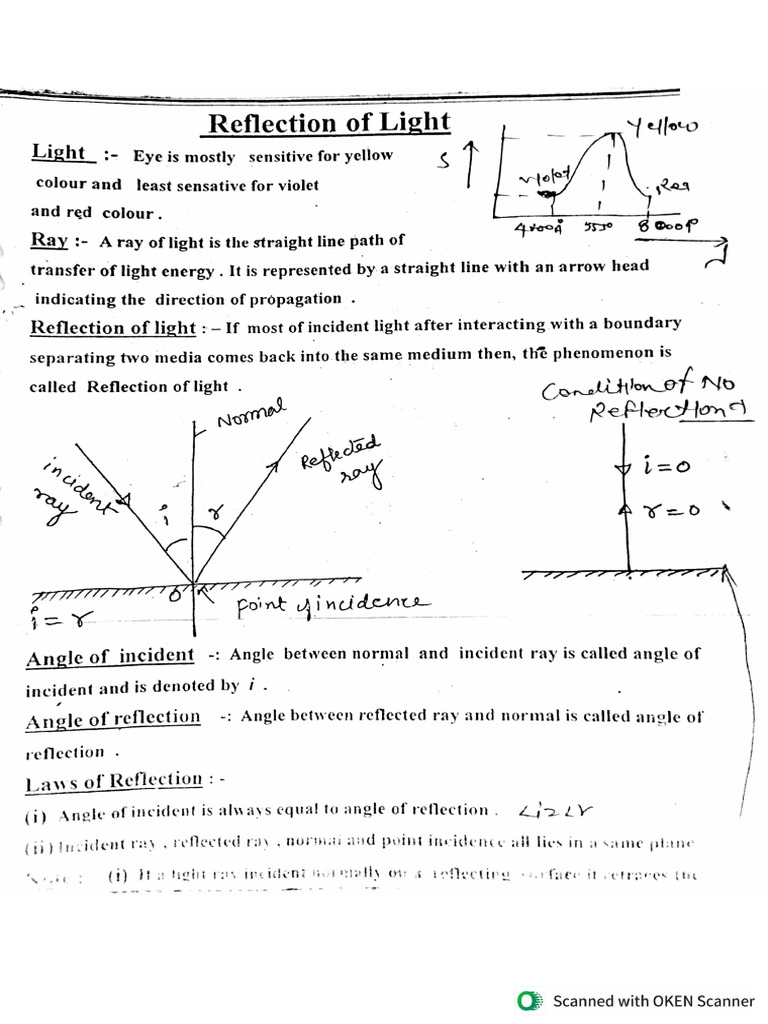 Reflection of Light
Light :- Eye is mostly sensitive for yellow
colour and least sensative for violet
and red colour .
S
Yellow
violet
Red
4000Å 5550 8000Å
Ray :- A ray of light is the straight line path of
transfer of light energy . It is represented by a straight line with an arrow head
indicating the direction of propagation .
Reflection of light : – If most of incident light after interacting with a boundary
separating two media comes back into the same medium then, the phenomenon is
called Reflection of light .
Condition of No
Reflection
Normal
incident
ray
Reflected
ray
i
r
i = 0
r = 0
O
Point of incidence
i = r
Angle of incident -: Angle between normal and incident ray is called angle of
incident and is denoted by i .
Angle of reflection -: Angle between reflected ray and normal is called angle of
reflection .
Laws of Reflection : -
(i) Angle of incident is always equal to angle of reflection . ∠i=∠r
(ii) Incident ray , reflected ray , normal and point incidence all lies in a same plane
(i) If a light ray incident normally on a reflecting surface it retraces the
Scanned with OKEN Scanner